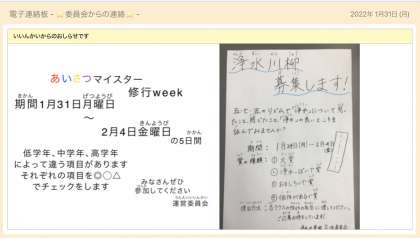 電子連絡板 − ... 委員会からの連絡 ... −
2022年1月31日(月)
いいんかいからのおしらせです
あいさつマイスター
修行week
きかん げつようび
期間1月31日月曜日
～
きんようび
2月4日金曜日
かかん
の5日間
低学年、中学年、高学年
によって違う項目があります
それぞれの項目を◎○△
でチェックをします
みなさんぜひ
参加してください
運営委員会
浄水川柳
募集します!
五・七・五のリズムで「浄水」について思っ
たこと、感じたこと、「浄水」の良いところを
詠んでみませんか?
期間:1月24日(月)〜2月4日
(金)
賞の種類:①大賞
②浄水っぽいで賞
③おもしろいで賞
④個性があるで賞